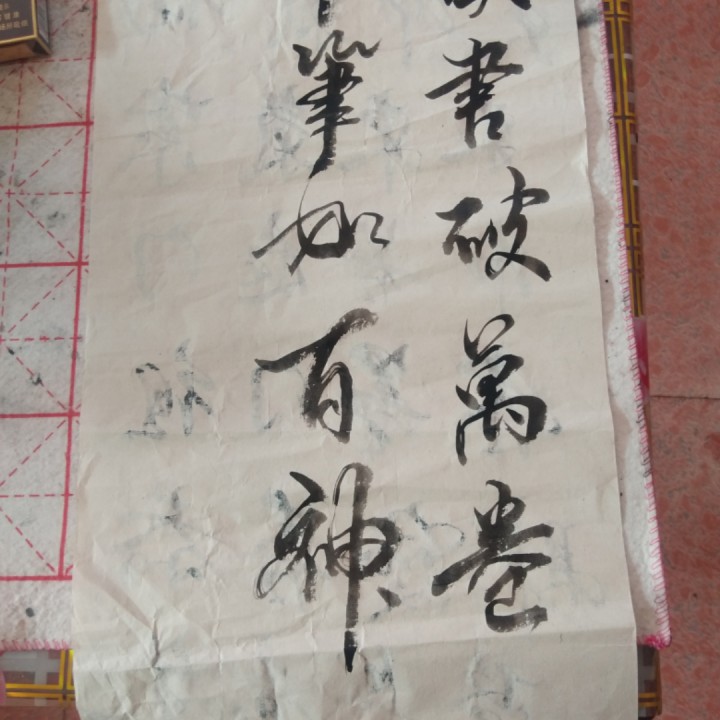 書破萬卷
筆如百神